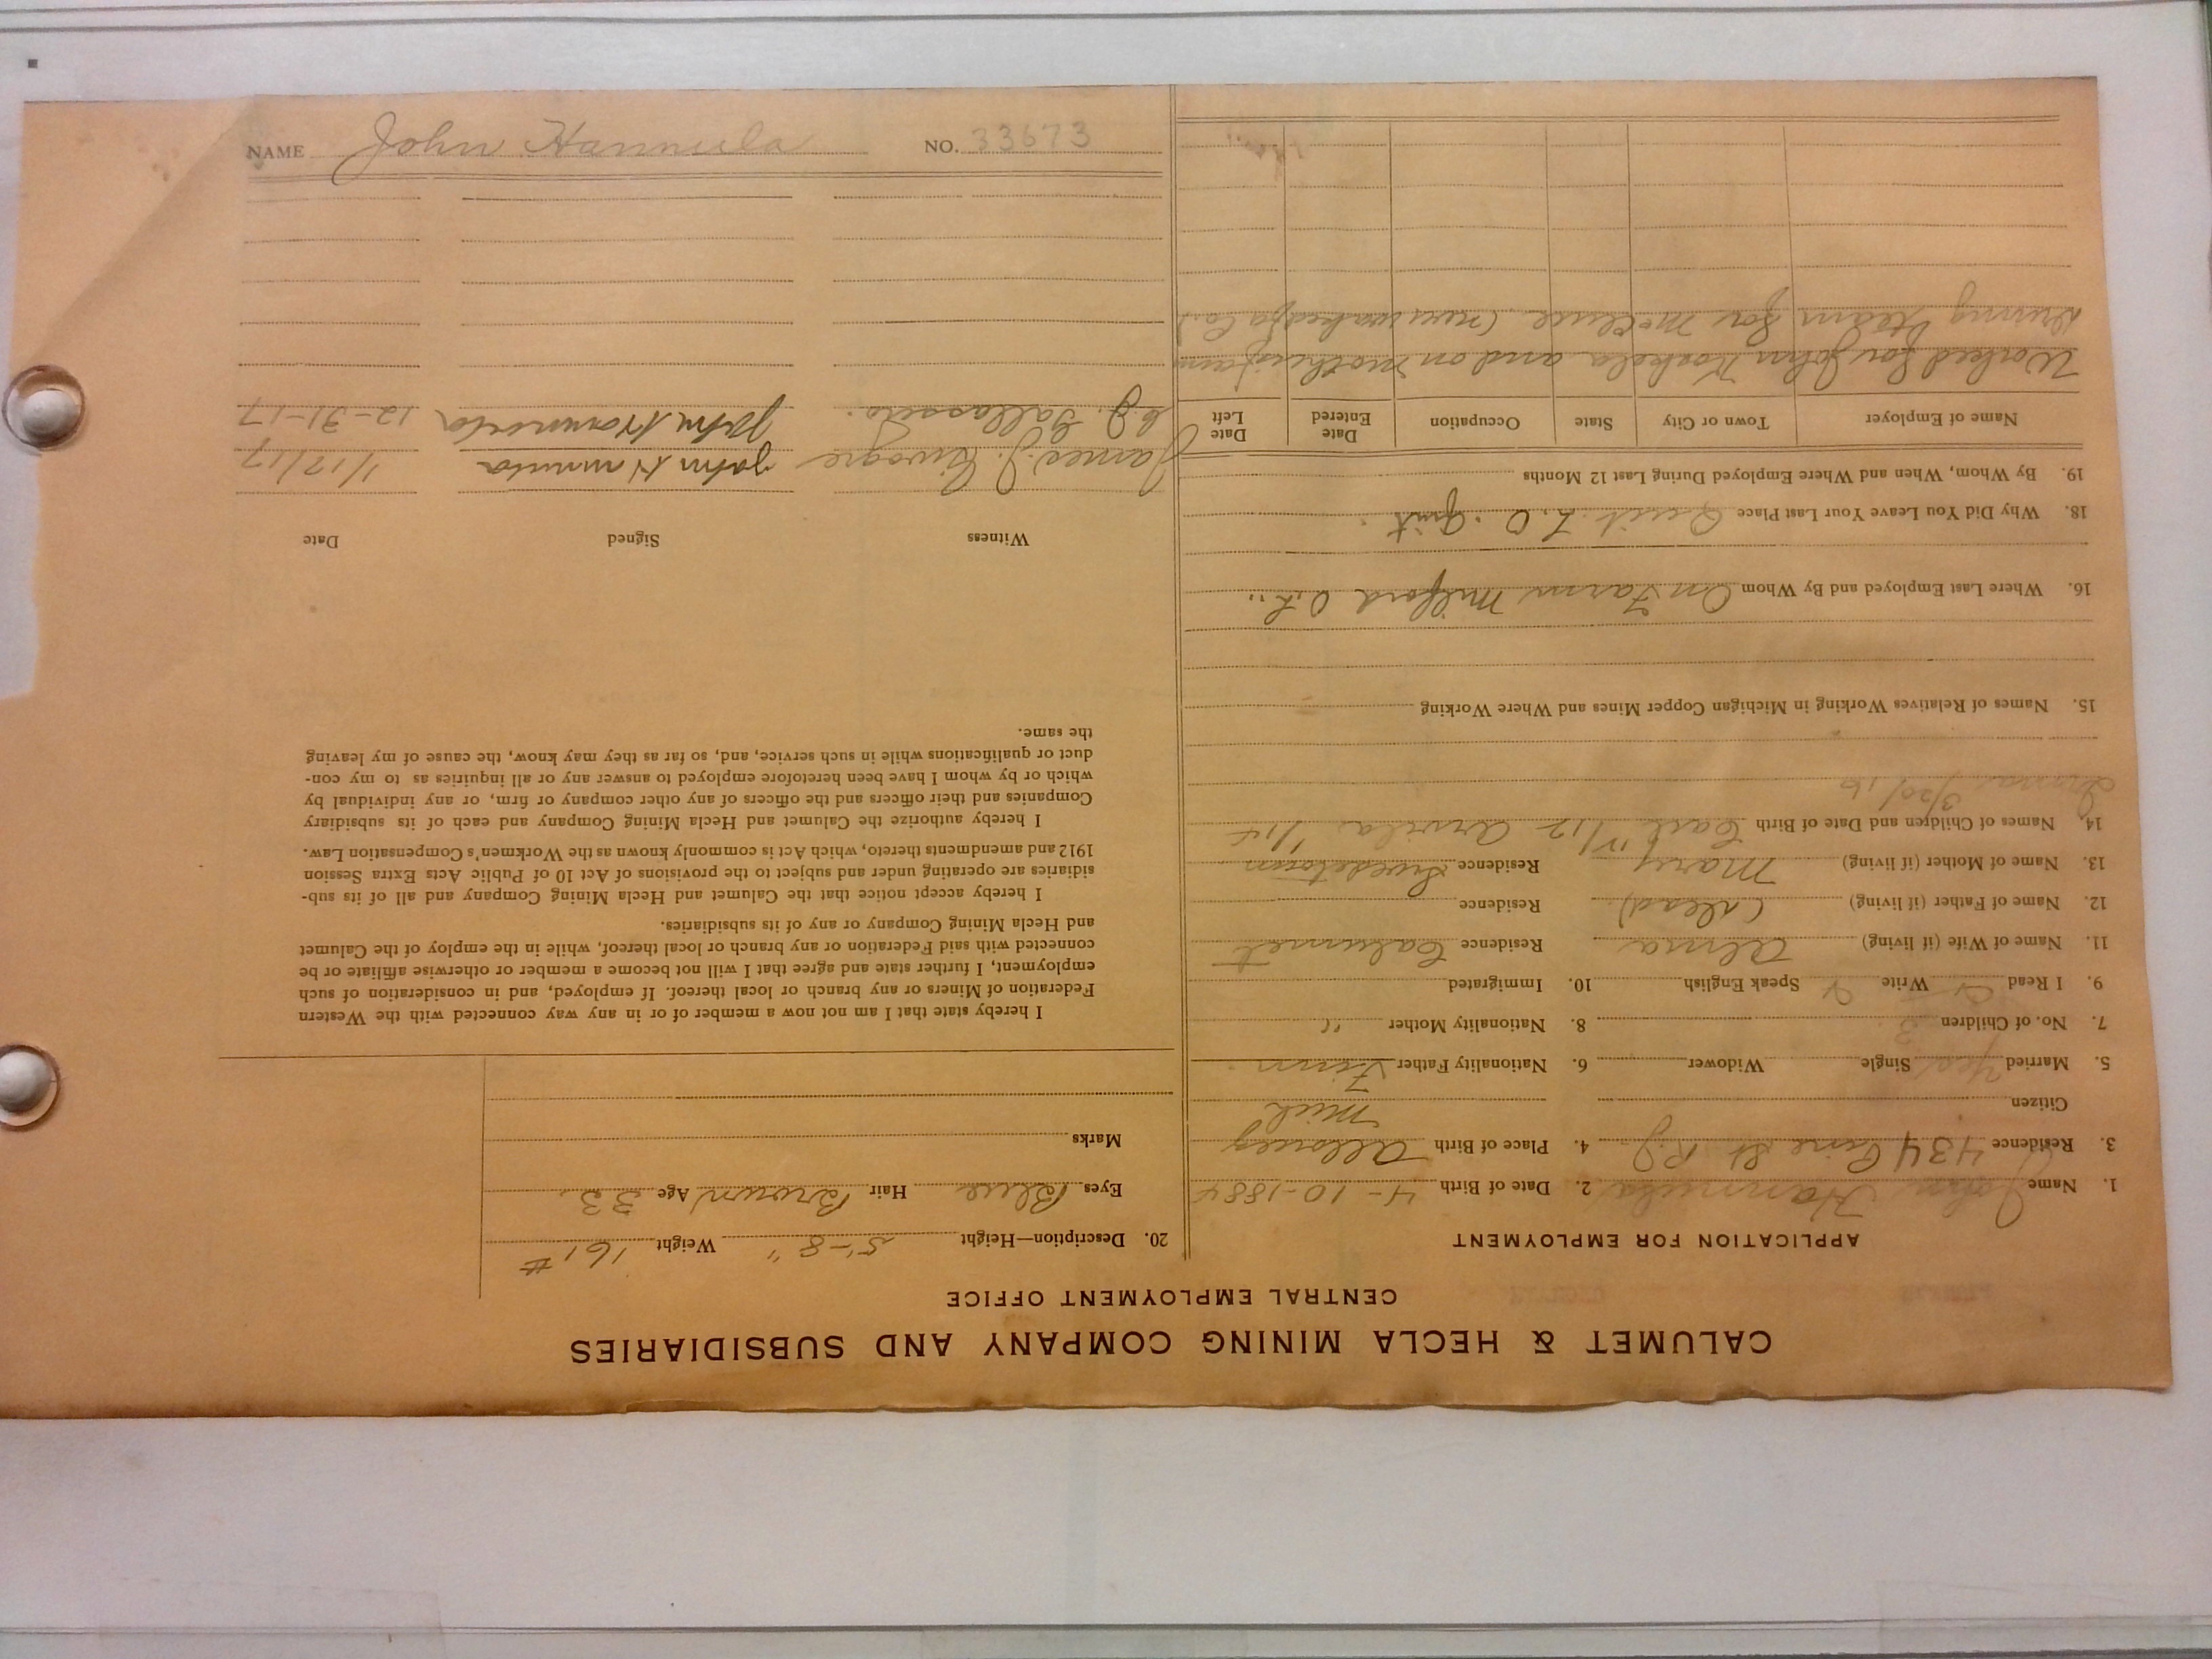 CALUMET & HECLA MINING COMPANY AND SUBSIDIARIES
CENTRAL EMPLOYMENT OFFICE
APPLICATION FOR EMPLOYMENT
1. Name John Hannula 2. Date of Birth 4-10-1884
3. Residence 434 Pine St R.J. 4. Place of Birth Allouez
Mich
Citizen
5. Married Yes Single Widower 6. Nationality Father Finn
7. No. of Children 3 8. Nationality Mother "
9. I Read Write Speak English 10. Immigrated
11. Name of Wife (if living) Alma Residence Calumet
12. Name of Father (if living) (dead) Residence
13. Name of Mother (if living) Mary Residence Swedetown
14. Names of Children and Date of Birth Carl Arvila
3/20/16
15. Names of Relatives Working in Michigan Copper Mines and Where Working
16. Where Last Employed and By Whom On Farm Milford
18. Why Did You Leave Your Last Place Quit L.O. Quit.
19. By Whom, When and Where Employed During Last 12 Months
Name of Employer Town or City State Occupation Date Entered Date Left
Worked for John Koskela and on mothers farm
Driving team for McClure (never worked for Co.)
20. Description—Height 5'-8" Weight 161#
Eyes Blue Hair Brown Age 33.
Marks
I hereby state that I am not now a member of or in any way connected with the Western
Federation of Miners or any branch or local thereof. If employed, and in consideration of such
employment, I further state and agree that I will not become a member or otherwise affiliate or be
connected with said Federation or any branch or local thereof, while in the employ of the Calumet
and Hecla Mining Company or any of its subsidiaries.
I hereby accept notice that the Calumet and Hecla Mining Company and all of its sub-
sidiaries are operating under and subject to the provisions of Act 10 of Public Acts Extra Session
1912 and amendments thereto, which Act is commonly known as the Workmen's Compensation Law.
I hereby authorize the Calumet and Hecla Mining Company and each of its subsidiary
Companies and their officers and the officers of any other company or firm, or any individual by
which or by whom I have been heretofore employed to answer any or all inquiries as to my con-
duct or qualifications while in such service, and, so far as they may know, the cause of my leaving
the same.
Witness Signed Date
James J. John Hannula 1/17/17
C.J. John Hannula 12-31-17
NAME John Hannula NO. 33673